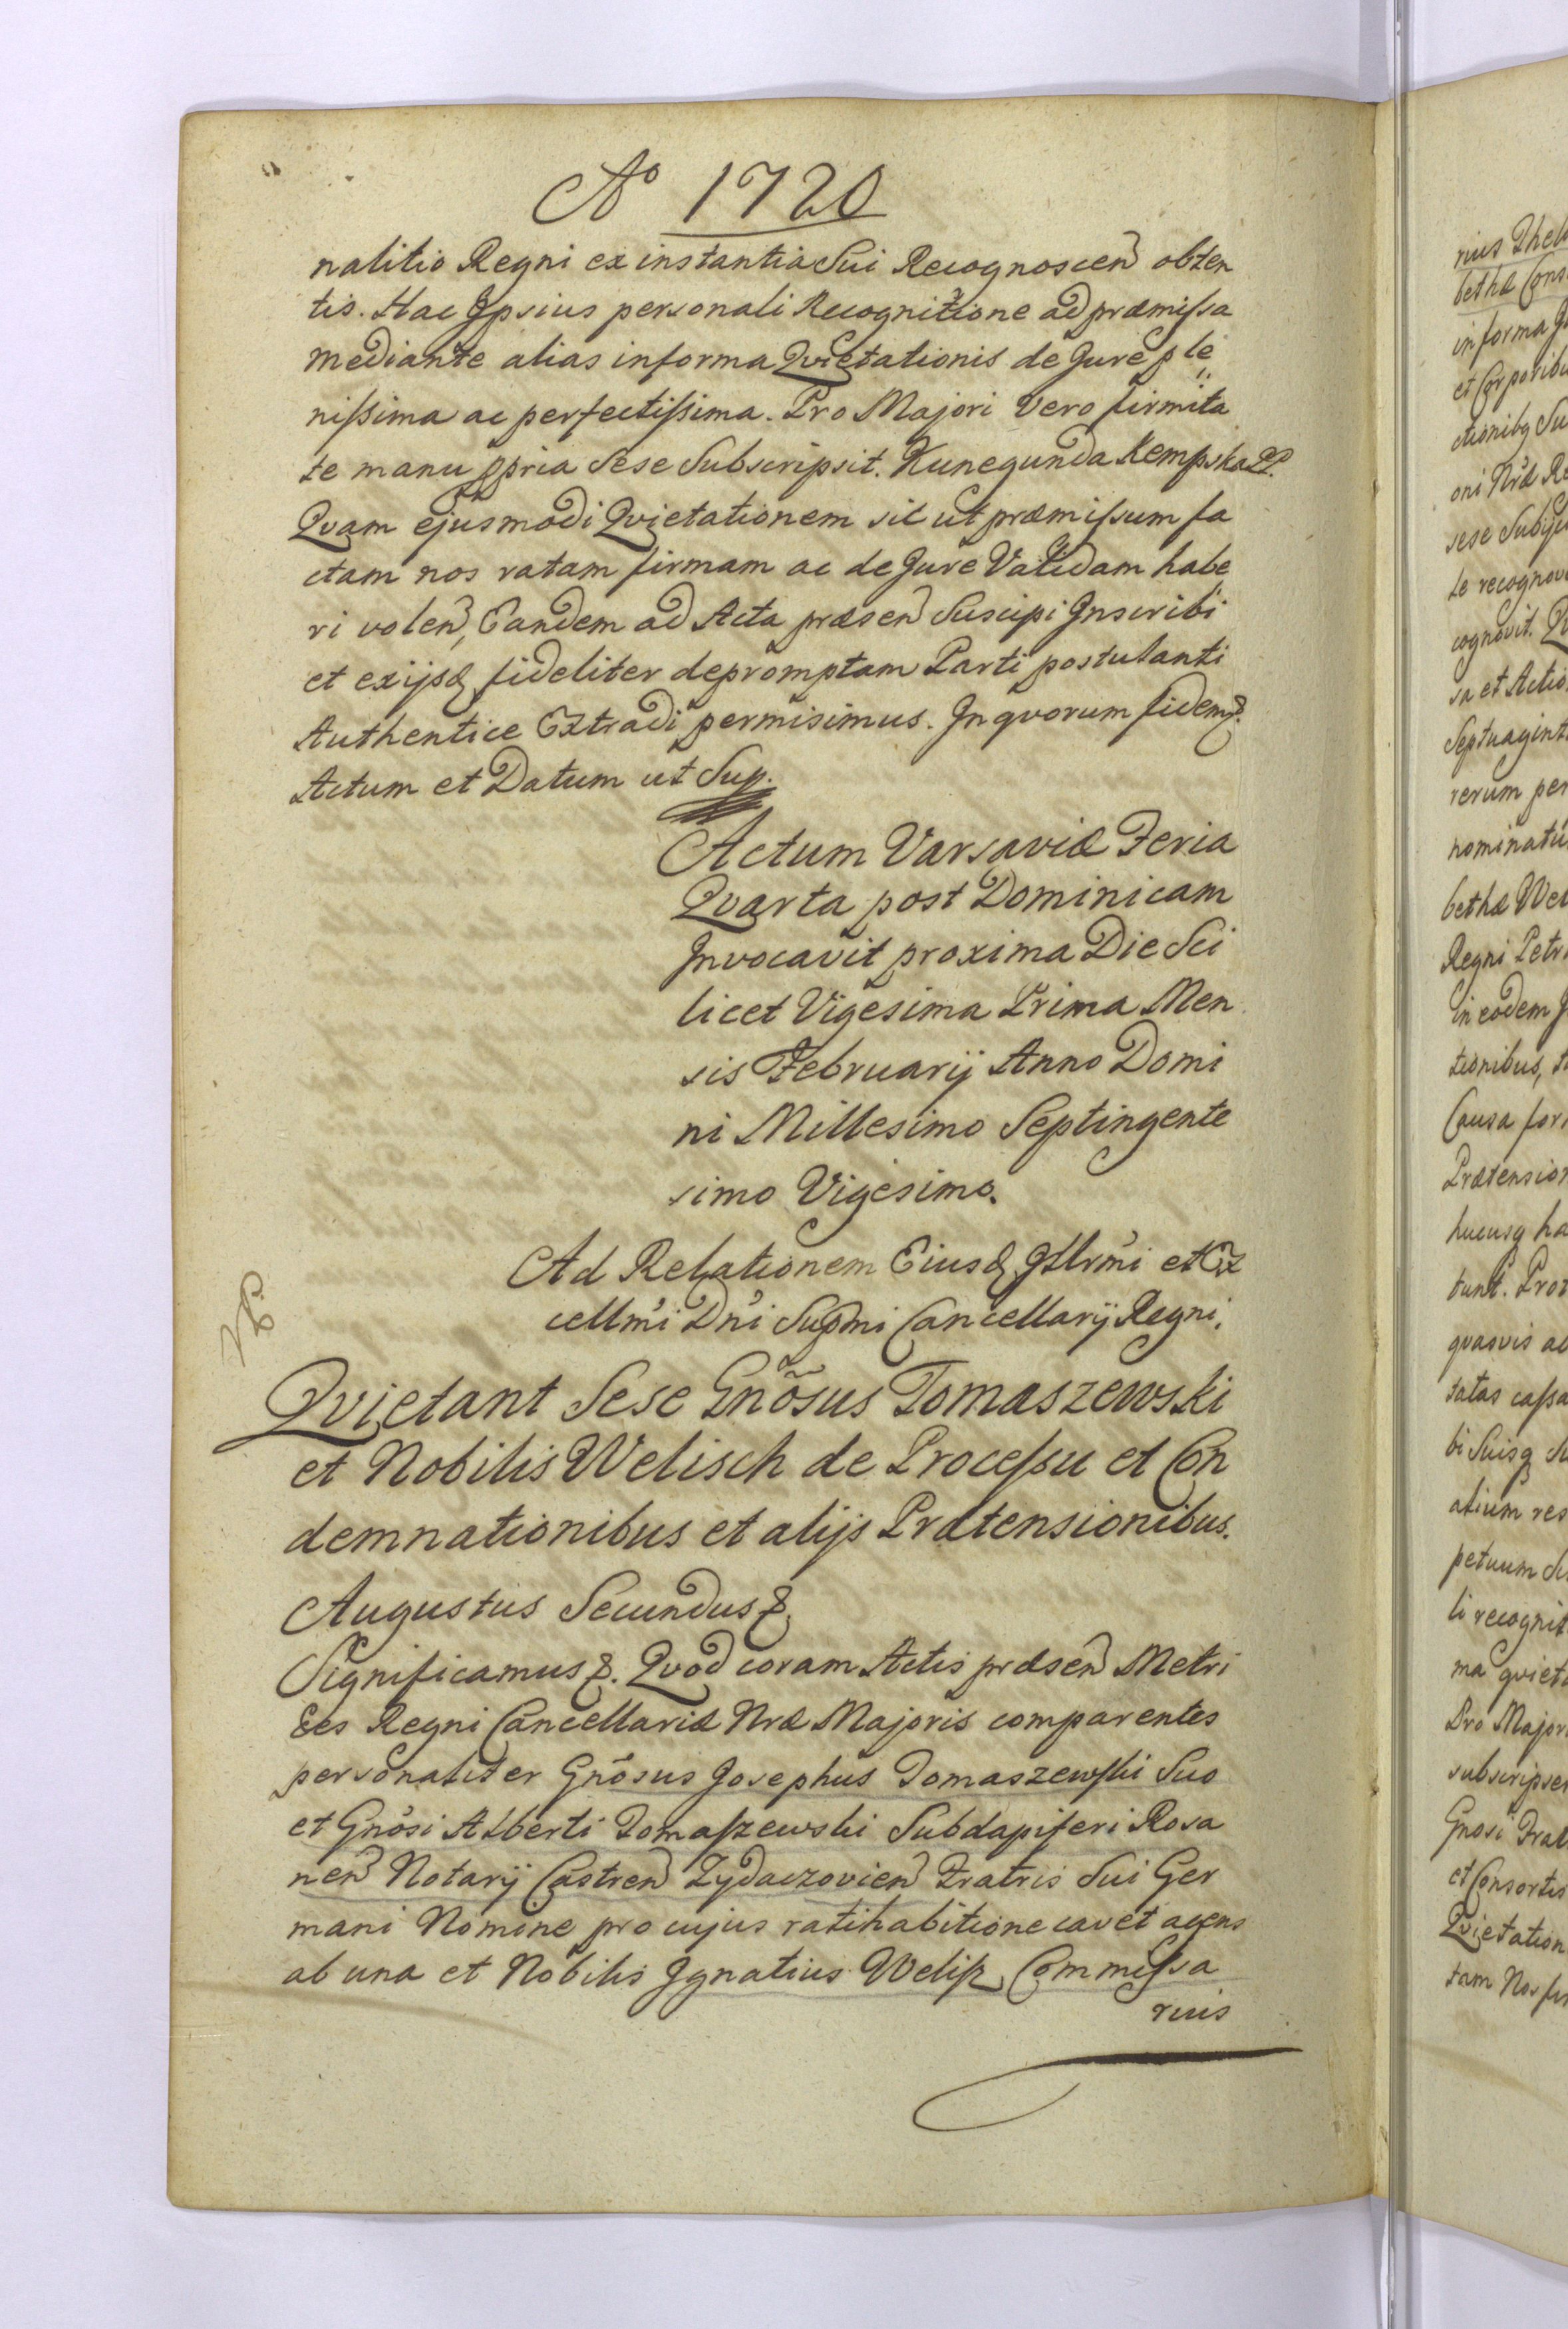 Aº 1720
nalitio Regni ex instantia Sui Recognoscen̄ obten
tis. Hac Ipsius personali Recognitione ad præmissa
mediante alias in forma Qvietationis de Jure ple
nissima ac perfectissima. Pro Majori Vero firmita
te manu ppria Sese Subscripsit. Kunegunda Kempska PP.
Qvam ejusmodi Qvietationem sic ut præmissum fa
ctam nos ratam firmam ac de Jure Validam habe
ri volen̄, Eandem ad Acta præsen̄ Suscipi Inscribi
et ex ijsd fideliter depromptam Parti postulanti
Authentice Extradi permisimus. In qvorum fidem &.
Actum et Datum ut Sup.
Actum Varsaviæ Feria
Qvarta post Dominicam
Invocavit proxima Die Sci
licet Vigesima Prima Men
sis Februarij Anno Domi
ni Millesimo Septingente
simo Vigesimo.
Ad Relationem Eiusd Illrmi et Ex
cellmi Dni Supmi Cancellarij Regni.
NB.
Qvietant Sese Gnõsus Tomaszewski
et Nobilis Welisch de Processu et Con
demnationibus et alijs Prætensionibus.
Augustus Secundus &.
Significamus &. Qvod coram Actis præsen̄ Metri
ces Regni Cancellariæ Nræ Majoris comparentes
personaliter Gnõsus Josephus Tomaszewski Suo
et Gnõsi Alberti Tomaszewski Subdapiferi Rosa
nen̄ Notarij Castren̄ Zydaczovien̄ Fratris Sui Ger
mani Nomine pro cujus ratihabitione cavet agens
ab una et Nobilis Ignatius Welisz Commissa
rius
rius
bethæ Cons
in forma
et Corporibu
ctionibq
oni Nræ Re
sese
te recognov
cognovit.
sa et Actio
Septuagint
rerum per
nominatu
bethæ Wel
Regni Petr
in eodem
tionibus,
Causa for
Prætension
hucusq ha
bunt.
qvasvis ac
tatas cassa
bi Suisq
alium res
petuum
li recognit
ma qviet
Pro Major
subscripser
Gnosi Frat
et Consortis
Qvietation
tam Nos